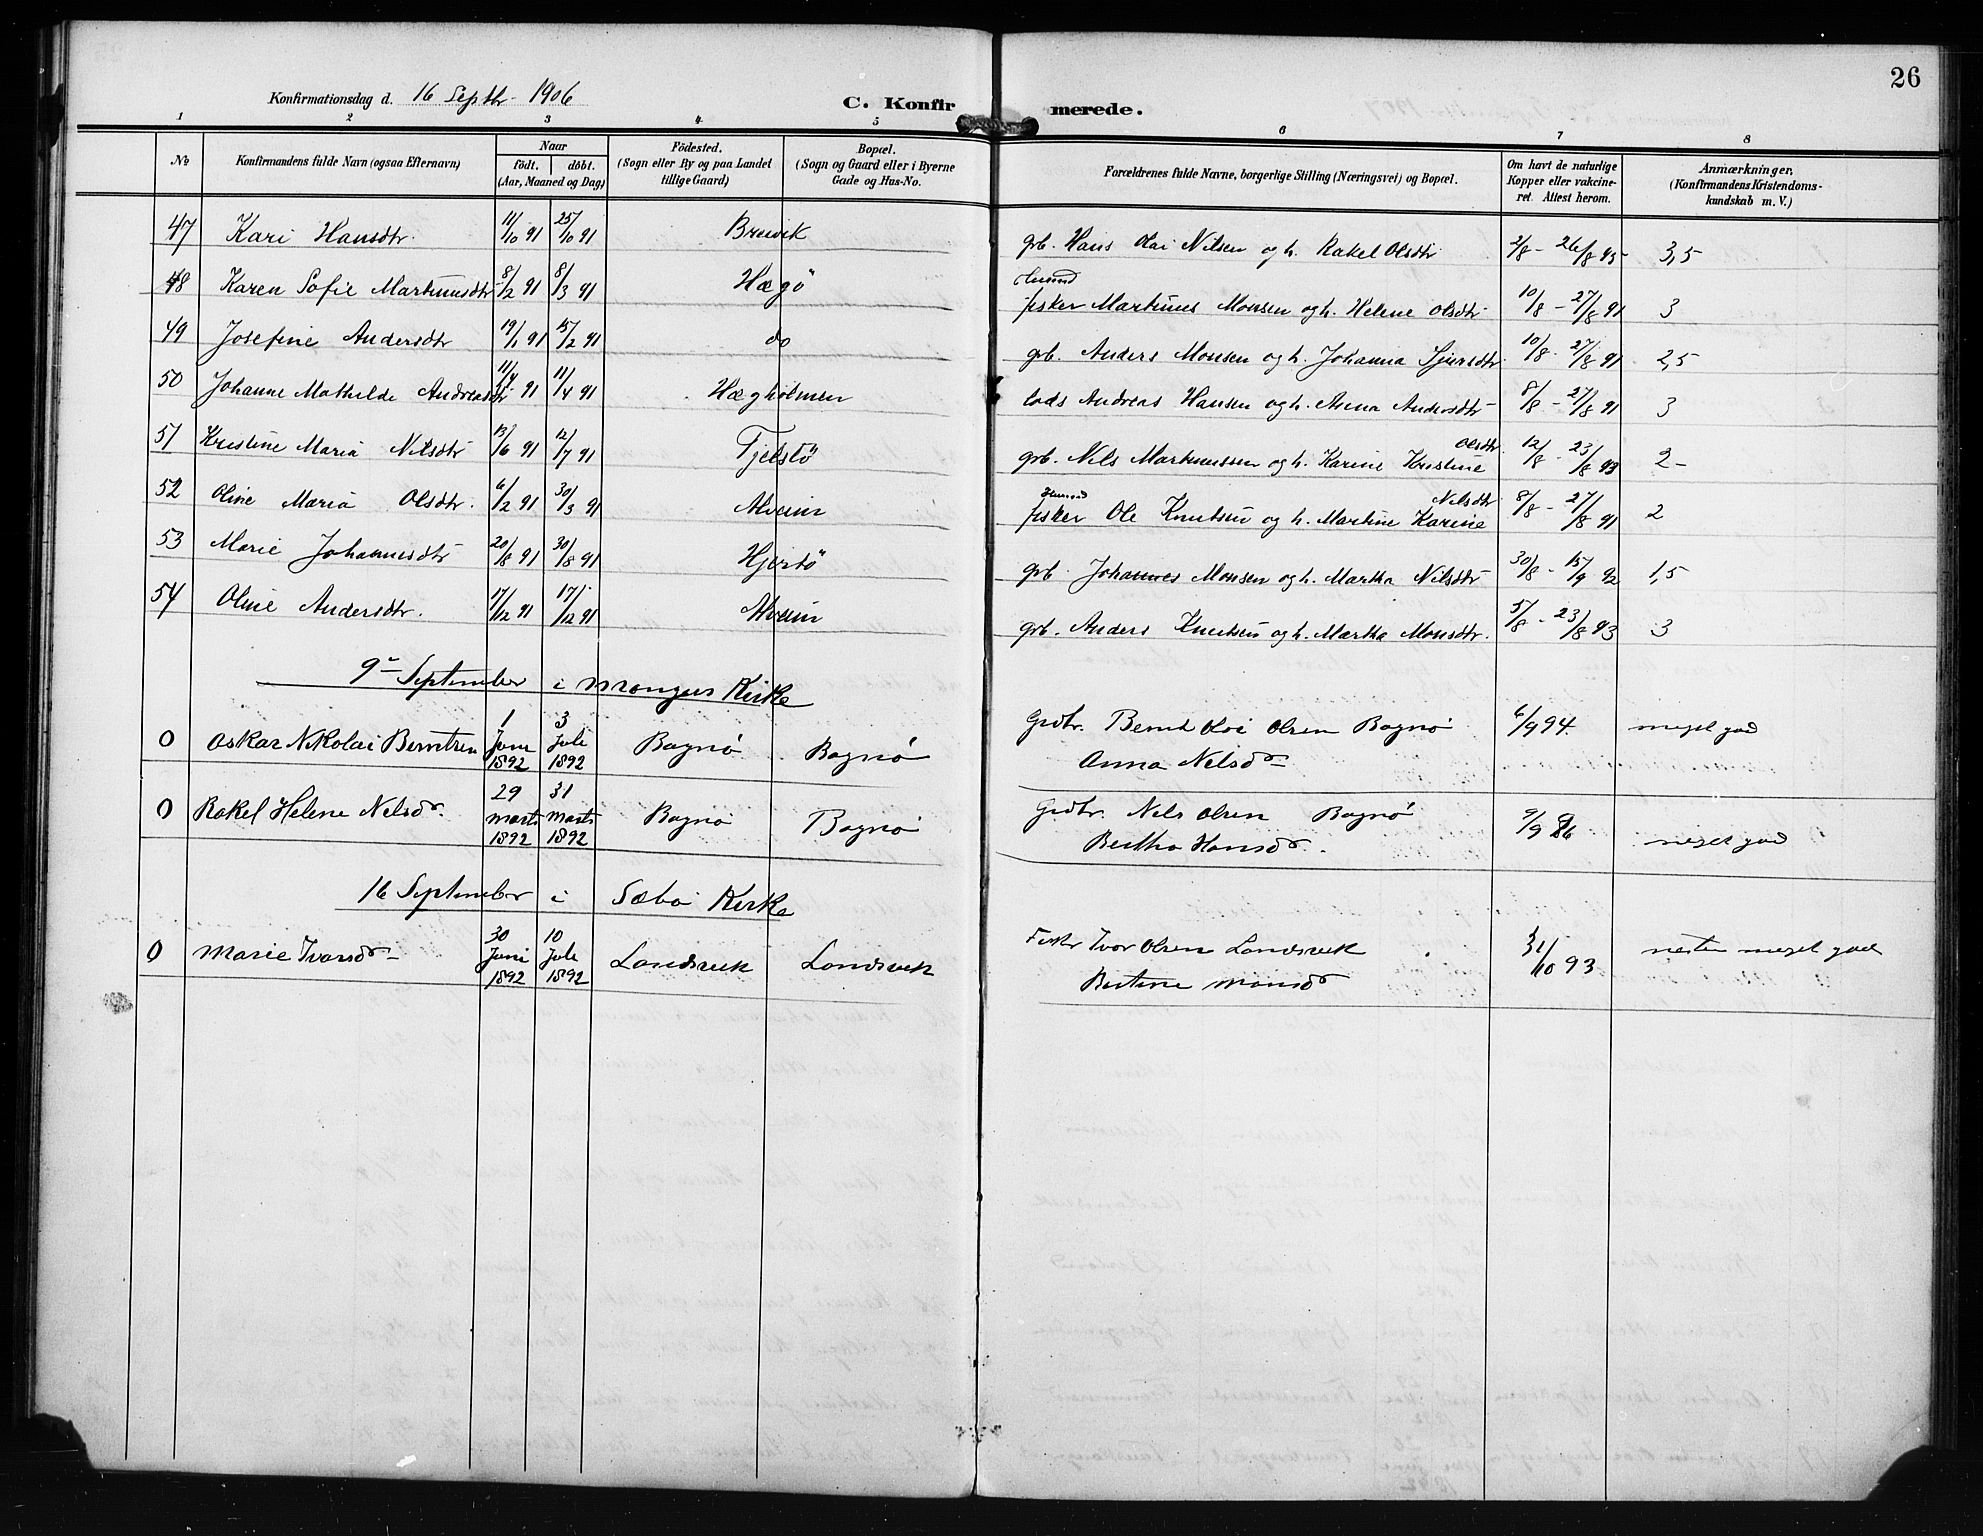 26
Konfirmationsdag d. 16 Septbr. 1906
C. Konfirmerede.
1 2 3 4 5 6 7 8
No
Konfirmandens fulde Navn (ogsaa Efternavn)
Naar
födt. döbt.
(Aar, Maaned og Dag)
Födested.
(Sogn eller By og paa Landet
tillige Gaard)
Bopæl.
(Sogn og Gaard eller i Byerne
Gade og Hus-No.
Forældrenes fulde Navne, borgerlige Stilling (Næringsvei) og Bopæl.
Om havt de naturlige
Kopper eller vakcine-
ret. Attest herom.
Anmærkninger,
(Konfirmandens Kristendoms-
kundskab m. V.)
47 Kari Hansdtr. 11/10 91 25/10 91 Breivik grb. Hans Olai Nilsen og h. Rakel Olsdtr 2/8 - 26/8 95 3,5
48 Karen Sofie Markusdtr 8/2 91 8/3 91 Hægö fisker Markus Monsen og h. Helene Olsdtr 10/8 - 27/8 91 3
49 Josefine Andersdtr 19/1 91 15/2 91 do grb. Anders Monsen og h. Johanna Sjursdtr 10/8 - 27/8 91 2,5
50 Johanne Mathilde Andreasdtr 11/4 91 Hægholmen Andreas Hansen og h. Anna Andersdtr 8/8 - 27/8 91 3
51 Kristine Maria Nilsdtr 13/6 91 12/7 91 Fjelstö grb. Nils Markussen og h. Karine Kristine Olsdtr 12/8 - 23/8 93 2-
52 Oline Maria Olsdtr. 6/2 91 30/3 91 Alveim fisker Ole Knutsen og h. Martine Karine Nilsdtr 8/8 - 27/8 91 2
53 Marie Johannesdtr 20/8 91 30/8 91 Hjertö grb. Johannes Monsen og h. Martha Nilsdtr 30/8 - 15/9 92 1,5
54 Oline Andersdtr. 17/12 91 Alveim grb. Anders Knutsen og h. Martha Monsdtr. 5/8 - 23/8 93 3
9 September i Mangers Kirke
0 Oskar Nikolai Berntsen 1 Juni 1892 3 Juli 1892 Bognö Bognö Grdbr. Bernt Olai Olsen Bognö 6/9 94. meget god
Anna Nelsd
0 Rakel Helene Nelsd. 29 Marts 1892 31 Marts 1892 Bognö Bognö Grdbr. Nels Olsen Bognö meget god
Bertha Hansd.
16 September i Sæbö Kirke
0 Marie Ivarsd 30 Juni 1892 10 Juli 1892 Landsvik Landsvik Ivar Olsen Landsvik 31/10 93 nesten meget god
Bertine Monsd